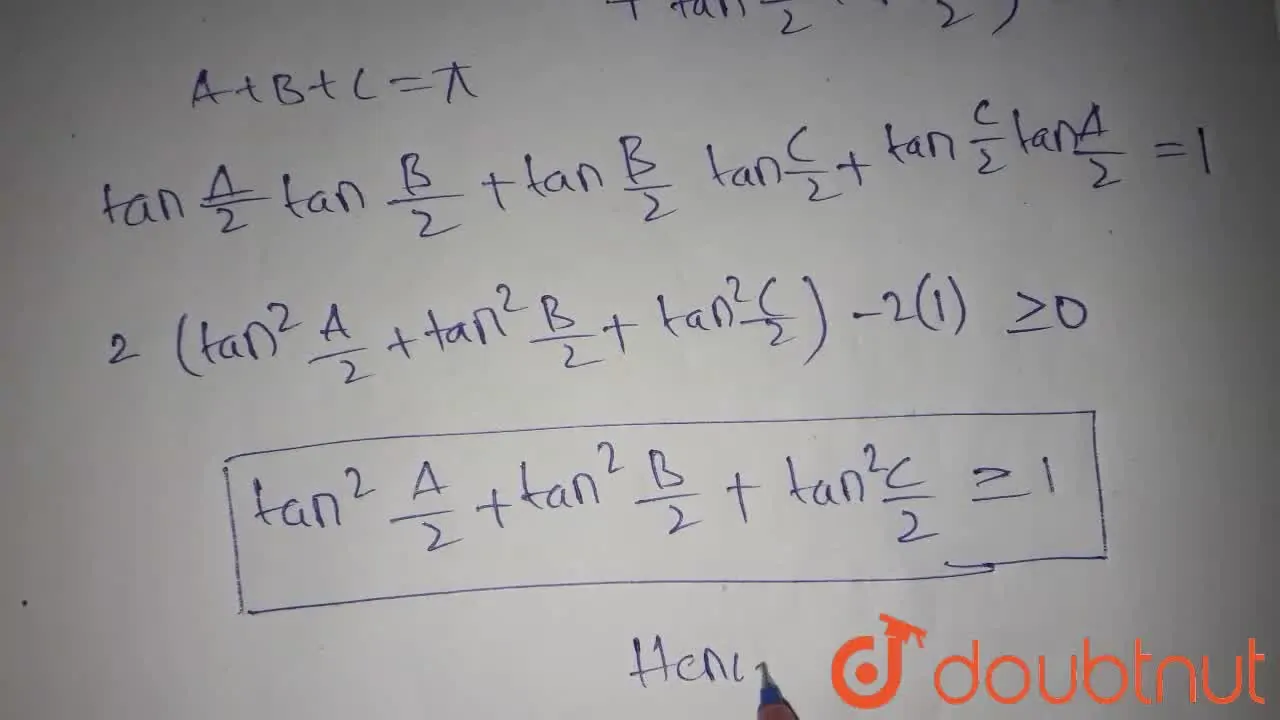 + tan /2 2 )
A+B+C=π
tan A/2 tan B/2 + tan B/2 tan C/2 + tan C/2 tan A/2 = 1
2 (tan² A/2 + tan² B/2 + tan² C/2) - 2(1) ≥0
tan² A/2 + tan² B/2 + tan² C/2 ≥ 1
Henc
doubtnut